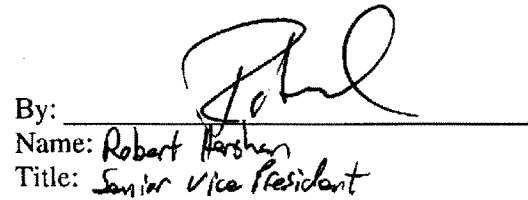 By:
Name: Robert Hershan
Title: Senior Vice President